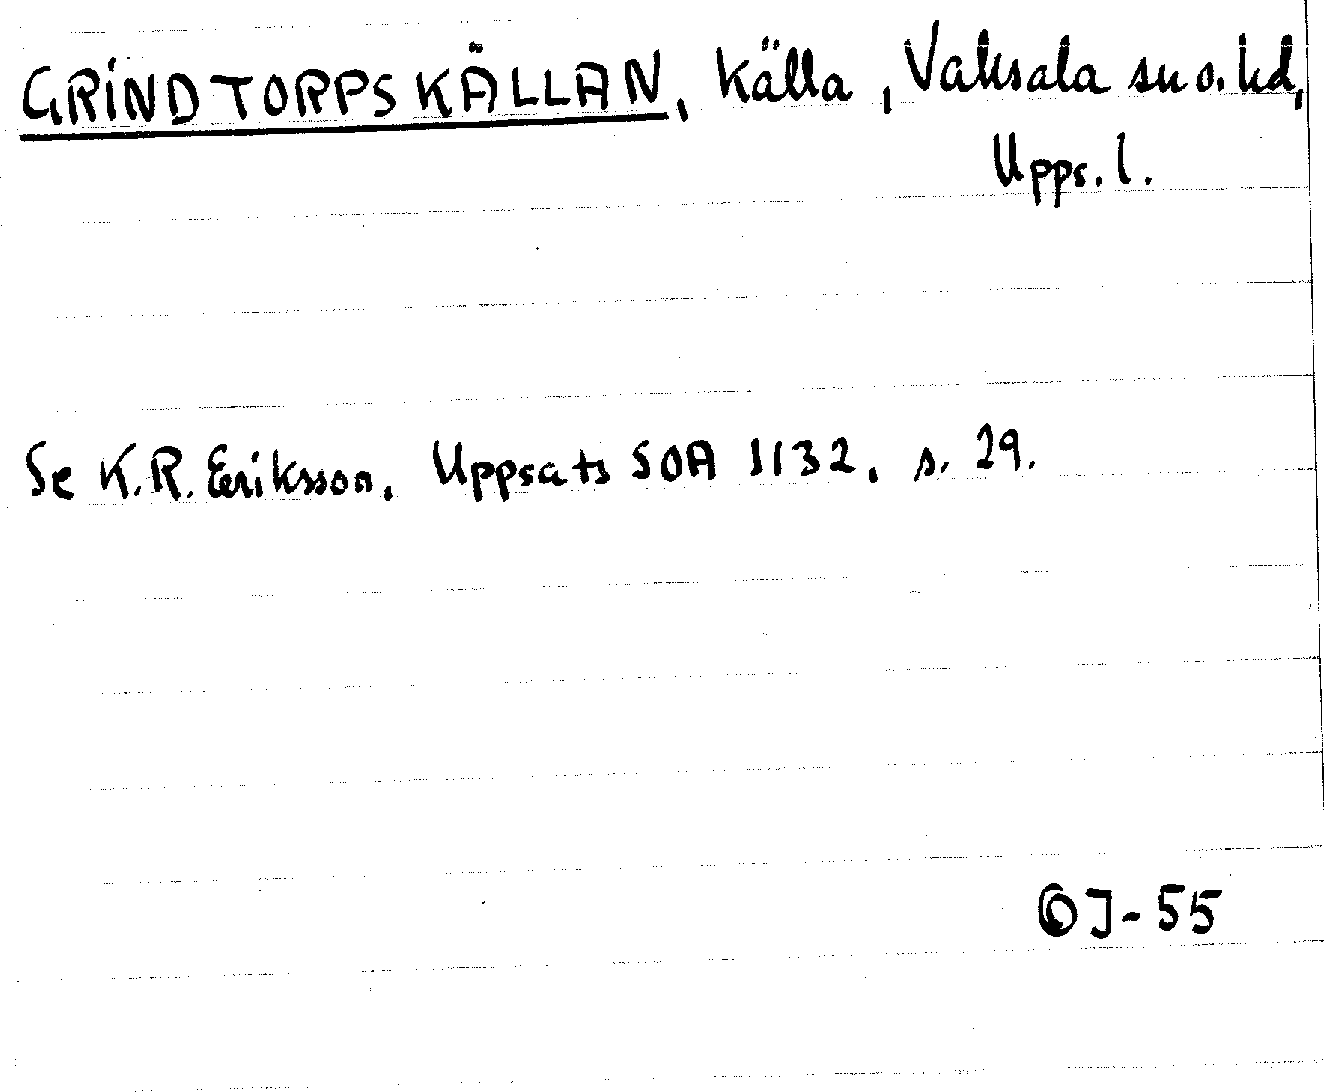 GRINDTORPSKÄLLAN, källa, Vaksala sn o. hd,
Upps. l.
Se K.R. Eriksson. Uppsats SOA 1132, s. 29.
OJ-55